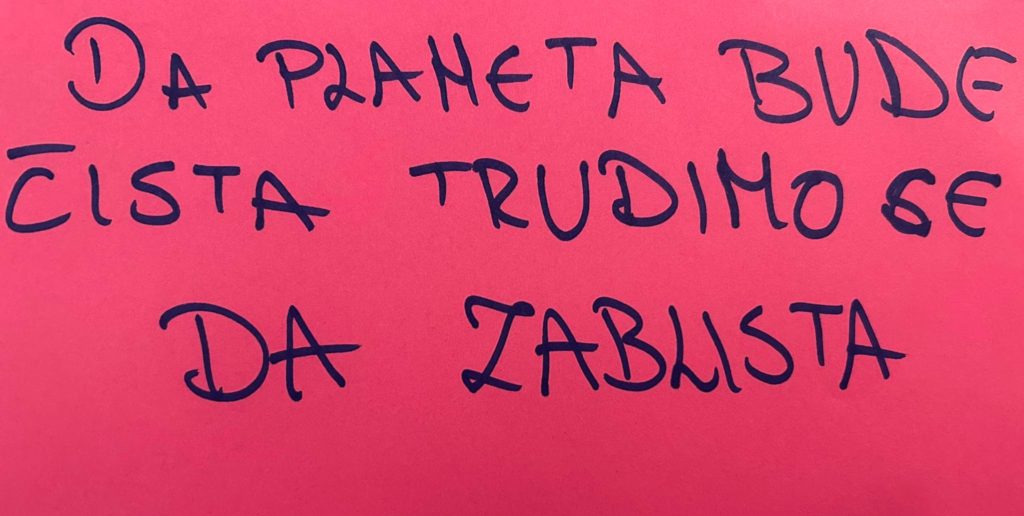 DA PLANETA BUDE
ČISTA TRUDIMO SE
DA ZABLISTA